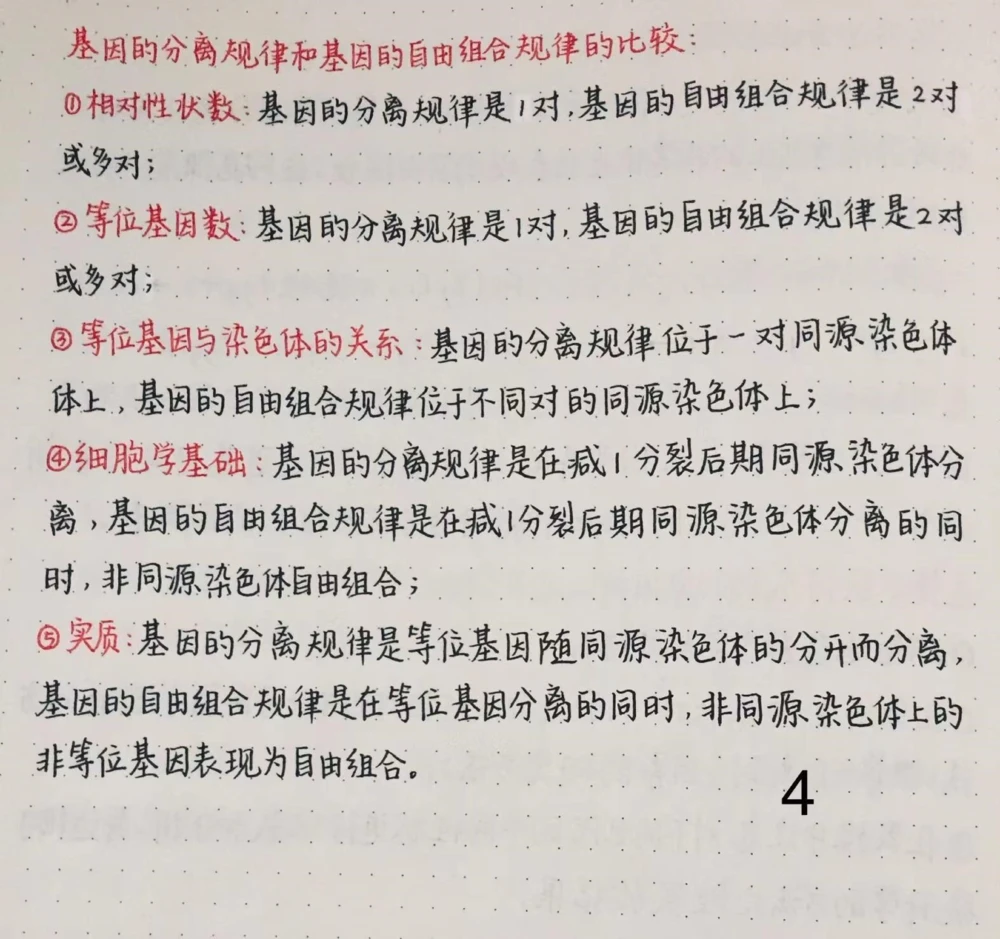 基因的分离规律和基因的自由组合规律的比较:
①相对性状数:基因的分离规律是1对,基因的自由组合规律是2对
或多对;
②等位基因数:基因的分离规律是1对,基因的自由组合规律是2对
或多对;
③等位基因与染色体的关系:基因的分离规律位于一对同源染色体
体上,基因的自由组合规律位于不同对的同源染色体上;
④细胞学基础:基因的分离规律是在减1分裂后期同源染色体分
离,基因的自由组合规律是在减1分裂后期同源染色体分离的同
时,非同源染色体自由组合;
⑤实质:基因的分离规律是等位基因随同源染色体的分开而分离,
基因的自由组合规律是在等位基因分离的同时,非同源染色体上的
非等位基因表现为自由组合。
4